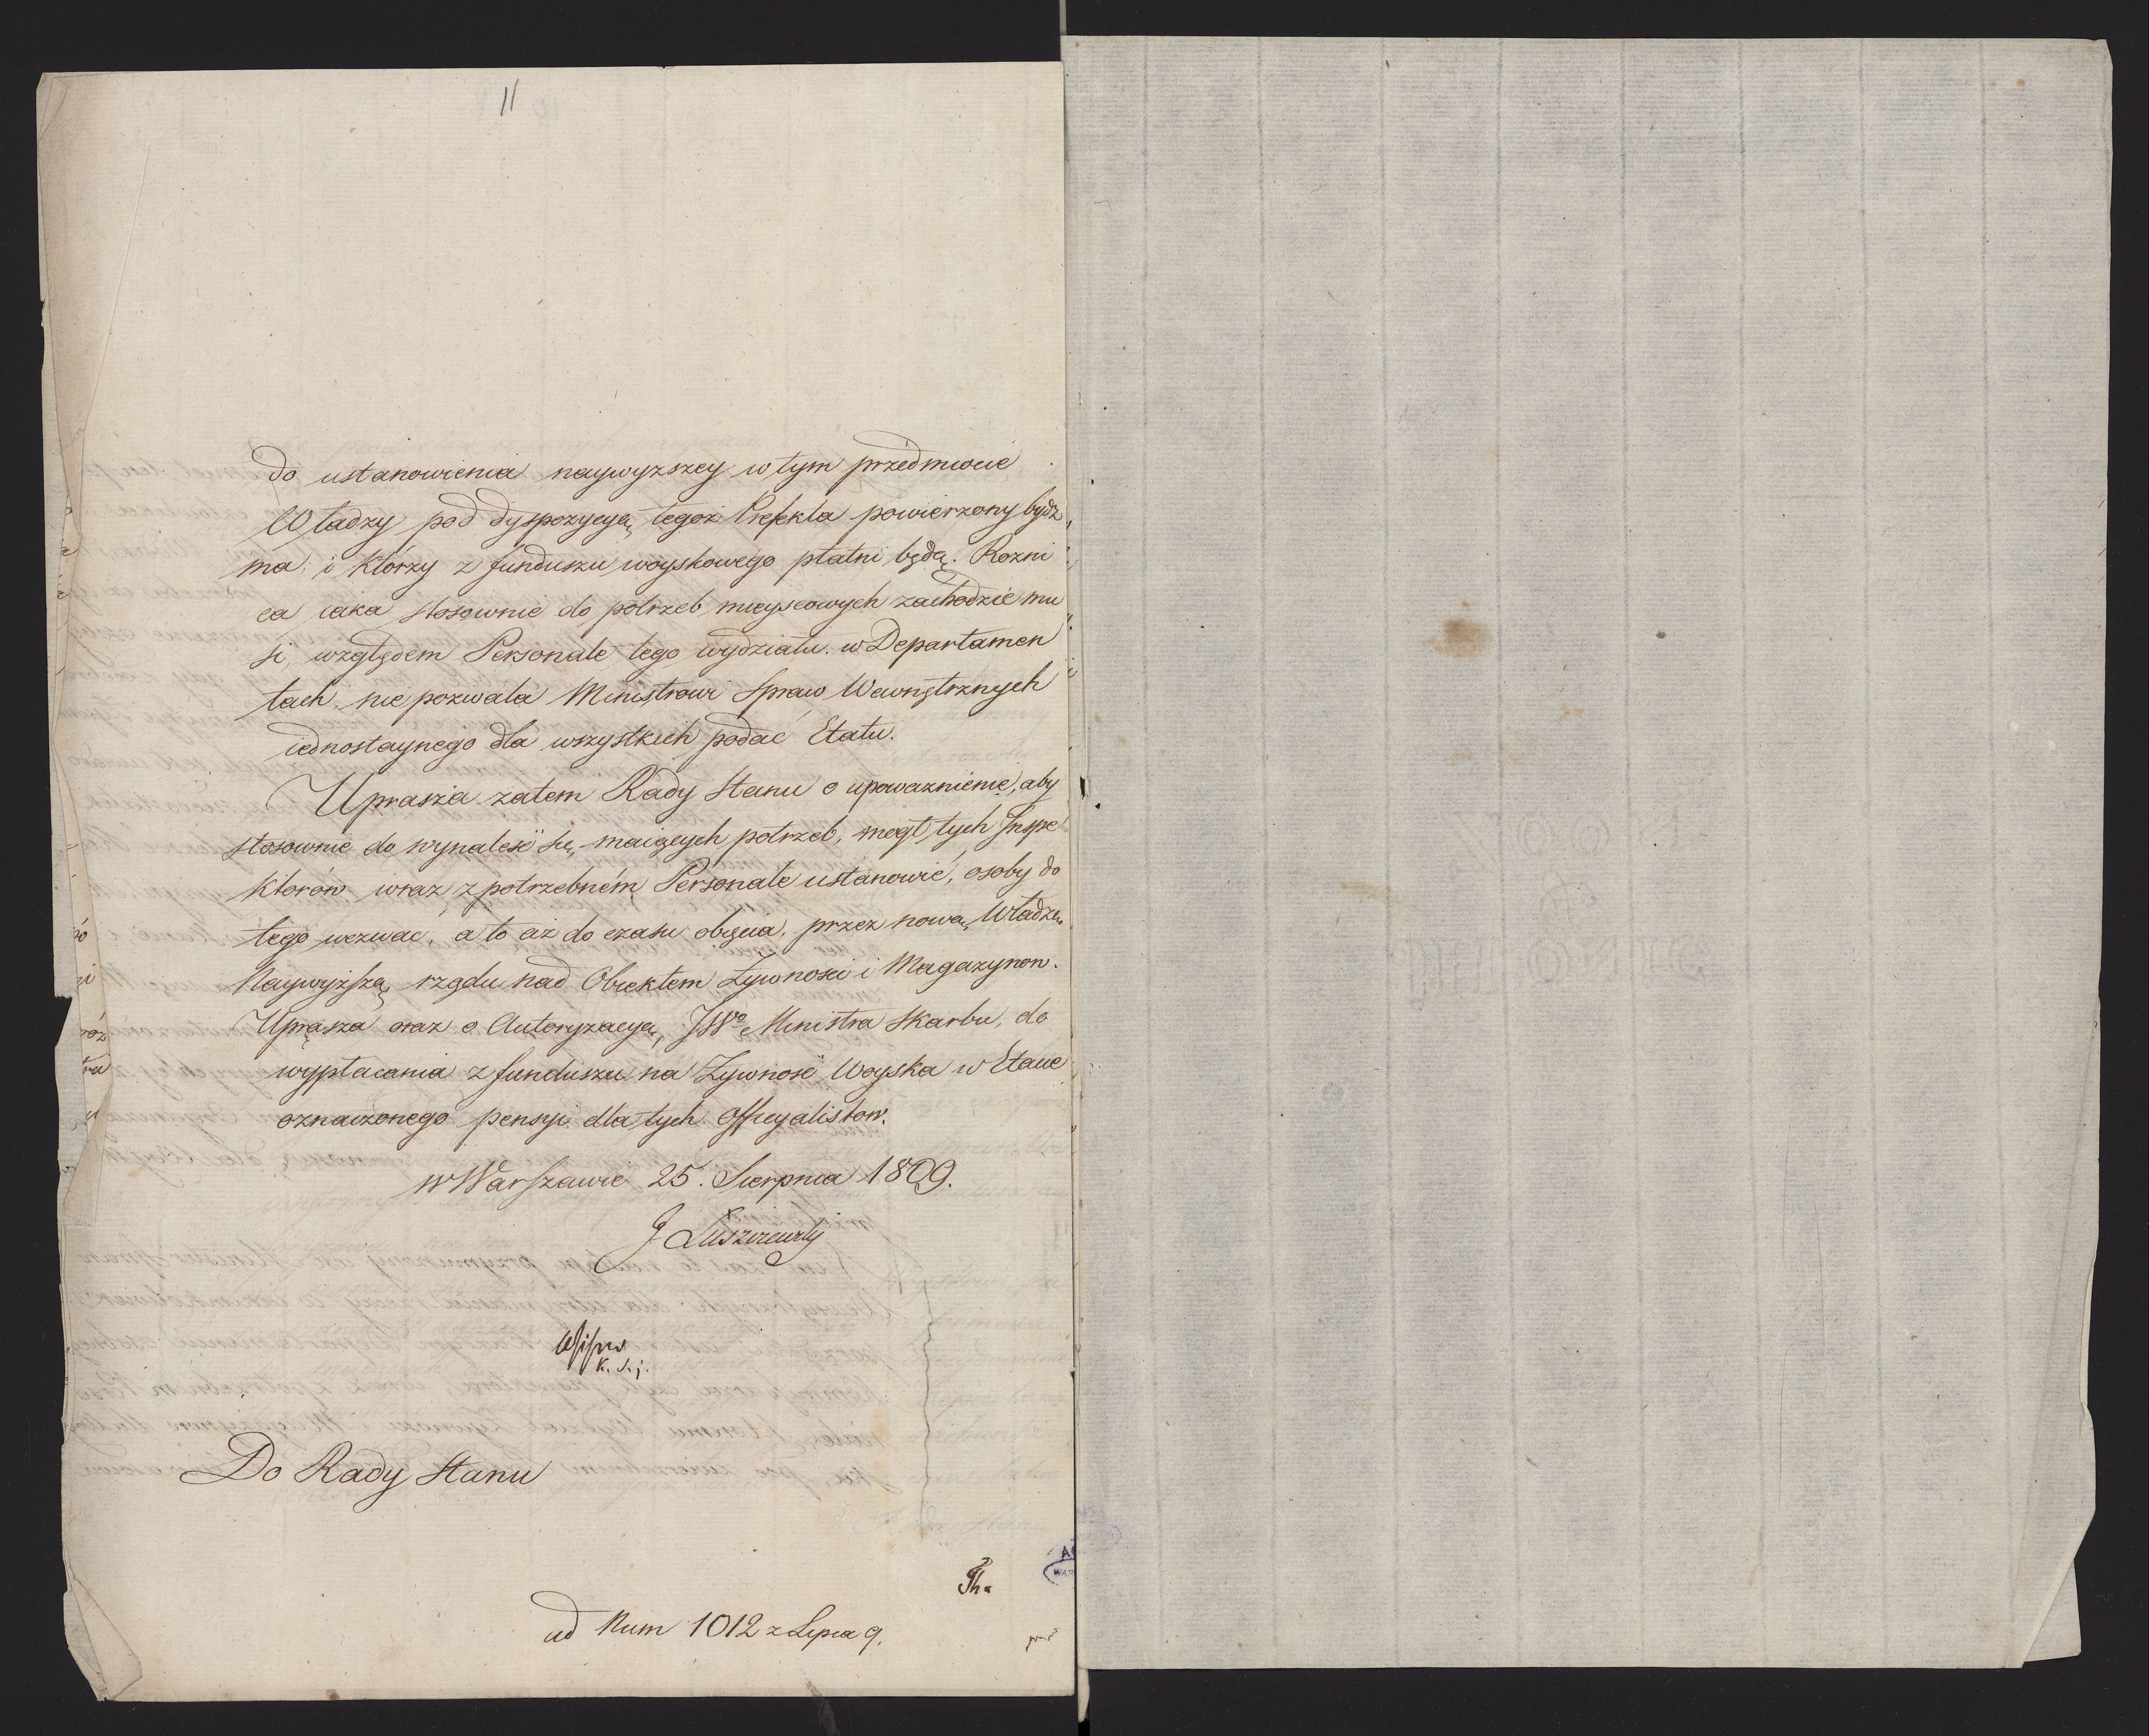 11
do ustanowienia naywyzszey w tym przedmiocie
Władzy pod dyspozycyą tegoż Prefekta powierzony bydz
ma, i którzy z funduszu woyskowego płatni będą. Rozni
ca iaka stosownie do potrzeb mieyscowych zachodzić mu
si, względem Personale tego wydziału w Departamen
tach, nie pozwala Ministrowi Spraw Wewnętrznych
iednostaynego dla wszystkich podać Etatu.
Uprasza zatem Rady Stanu o upoważnienie, aby
stosownie do wynaleść się maiących potrzeb, mogł tych Inspe
ktorów wraz z potrzebném Personale ustanowić, osoby do
tego wezwac, a to aż do czasu obięcia, przez nową Władzę
Naywyższą rządu nad Obiektem Żywnosci i Magazynow.
Uprasza oraz o Autoryzacyą JWo Ministra Skarbu, do
wypłacania z funduszu na Żywność Woyska w Etacie
oznaczonego pensyi dla tych Officyalistow.
w Warszawie 25. Sierpnia 1809.
J Łuszczewski
Do Rady Stanu
ad Num 1012 z Lipca 9.